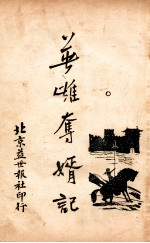 英雌奪婿記
北京益世报社印行